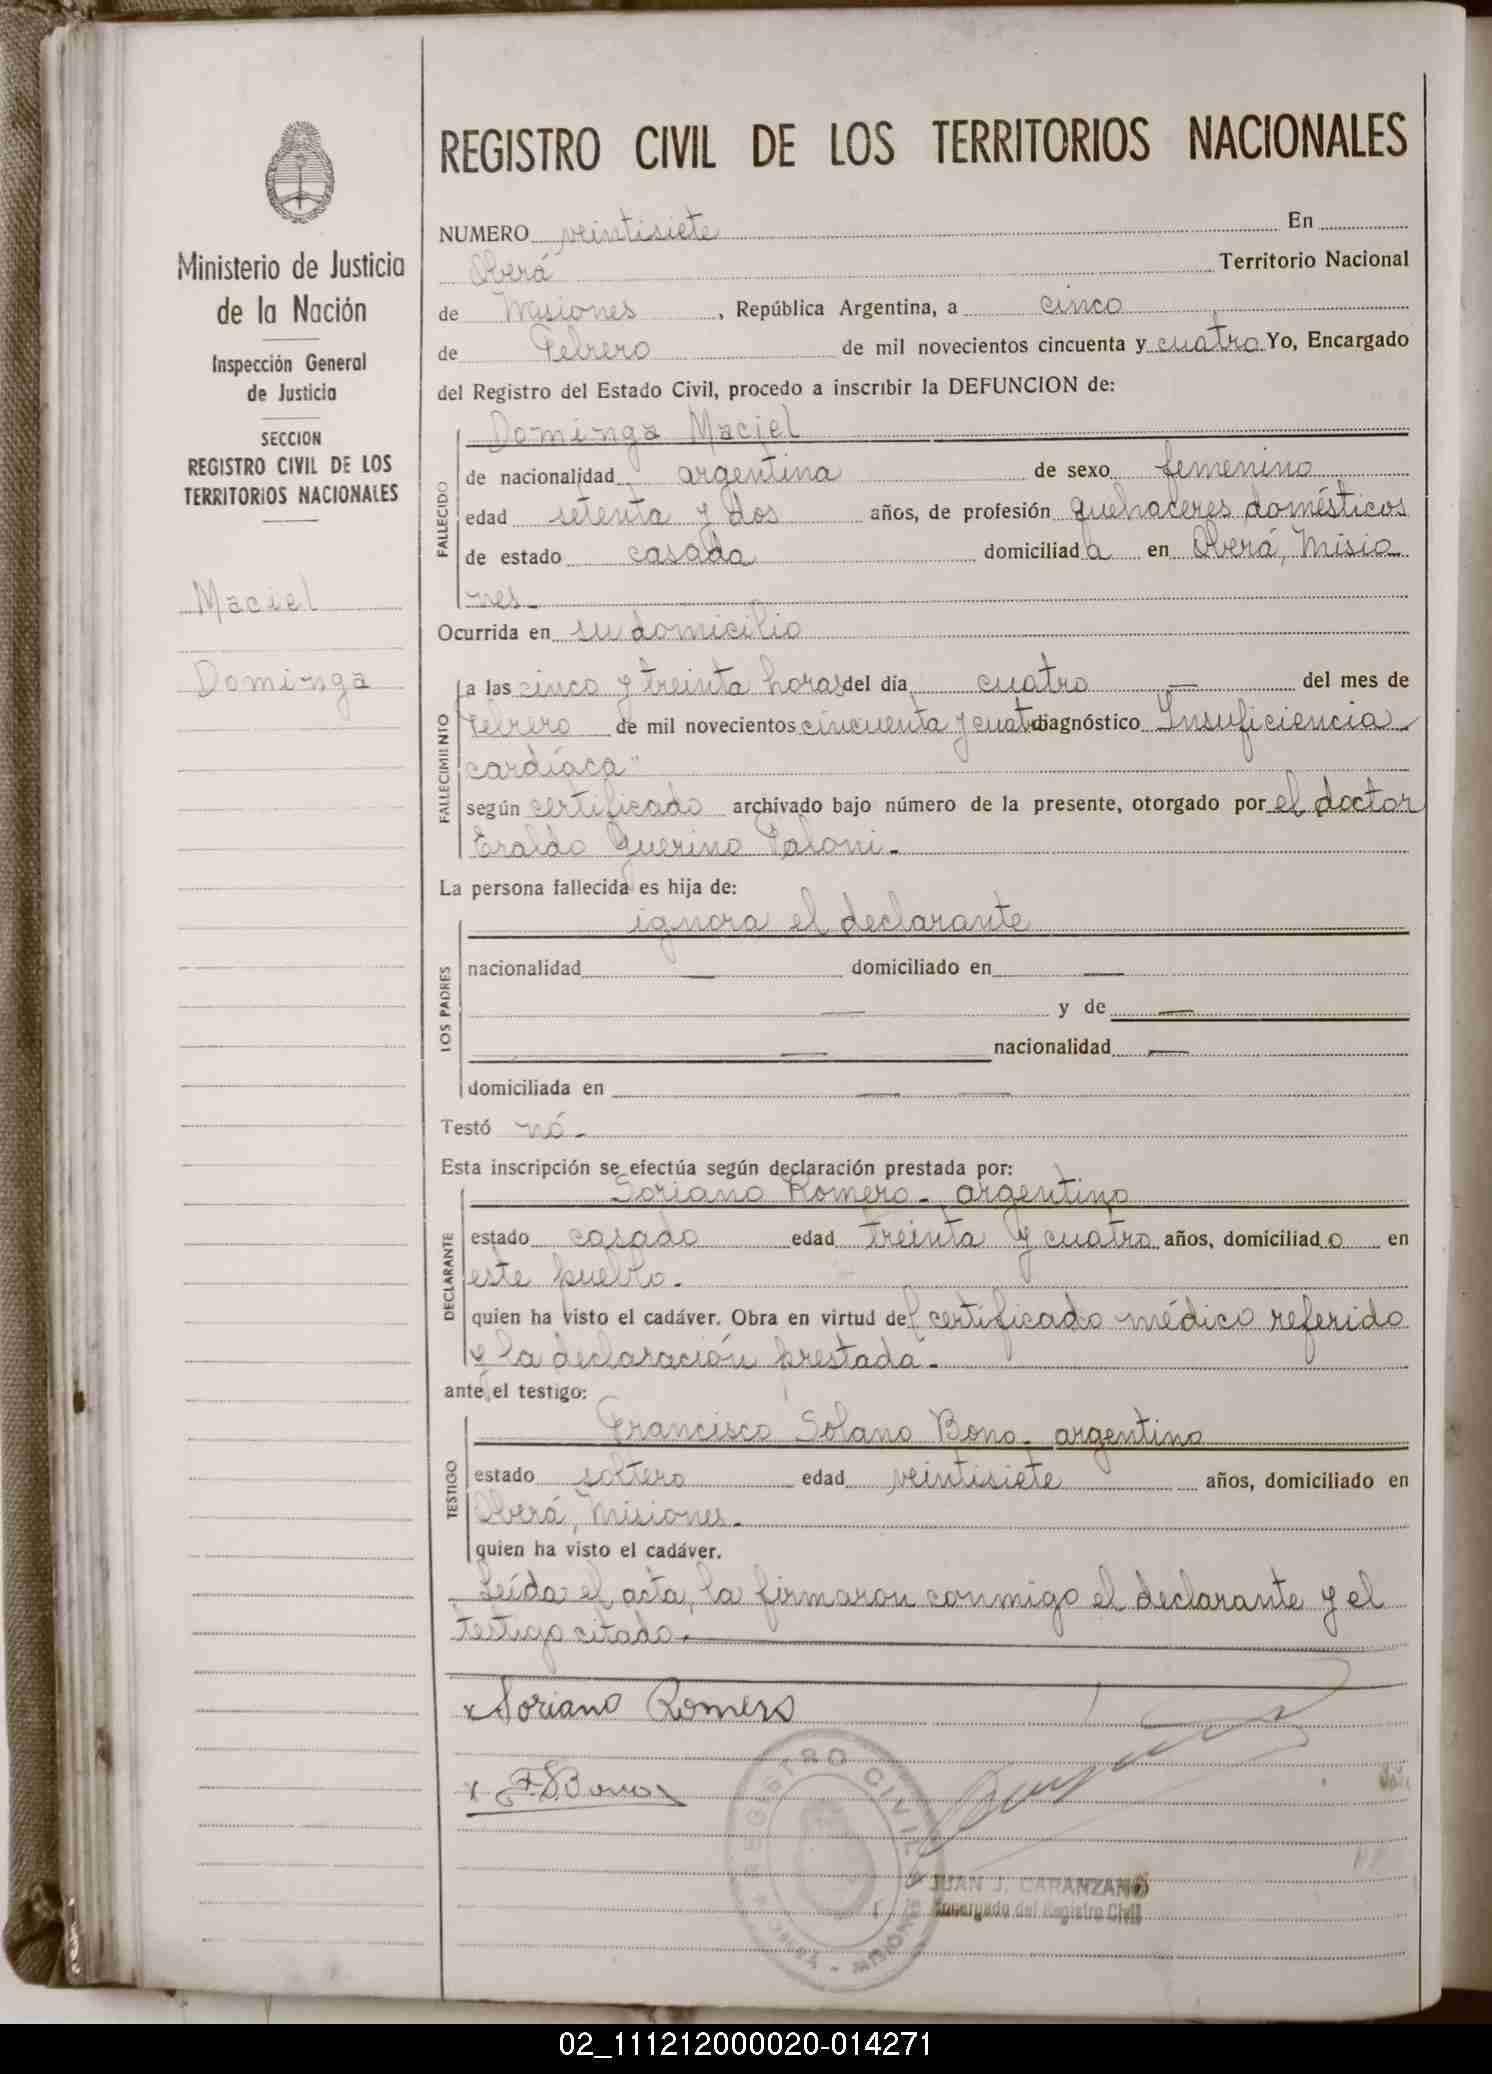 Ministerio de Justicia
de la Nación
Inspección General
de Justicia
SECCION
REGISTRO CIVIL DE LOS
TERRITORIOS NACIONALES
Maciel
Dominga
REGISTRO CIVIL DE LOS TERRITORIOS NACIONALES
NUMERO veintisiete En
Oberá Territorio Nacional
de Misiones, República Argentina, a cinco
de Febrero de mil novecientos cincuenta y cuatro Yo, Encargado
del Registro del Estado Civil, procedo a inscribir la DEFUNCION de:
FALLECIDO
Dominga Maciel
de nacionalidad argentina de sexo femenino
edad setenta y dos años, de profesión quehaceres domésticos
de estado casada domiciliada en Oberá, Misio
nes.-
Ocurrida en su domicilio
FALLECIMIENTO
a las cinco y treinta horas del día cuatro — del mes de
febrero de mil novecientos cincuenta y cuatro diagnóstico "Insuficiencia
cardíaca"
según certificado archivado bajo número de la presente, otorgado por el doctor
Eraldo Querino Paloni.-
La persona fallecida es hija de:
LOS PADRES
ignora el declarante
nacionalidad — domiciliado en —
— y de —
— nacionalidad —
domiciliada en — —
Testó nó.-
Esta inscripción se efectúa según declaración prestada por:
DECLARANTE
Soriano Romero.- argentino
estado casado edad treinta y cuatro años, domiciliado en
este pueblo.-
quien ha visto el cadáver. Obra en virtud del certificado médico referido
y la declaración prestada.-
ante el testigo:
TESTIGO
Francisco Solano Bono.- argentino
estado soltero edad veintisiete años, domiciliado en
Oberá, Misiones.-
quien ha visto el cadáver.
Leída el acta, la firmaron conmigo el declarante y el
testigo citado.-
x Soriano Romero
x F.S.Bono
REGISTRO CIVIL
OBERA - MISIONES
JUAN J. CARANZANO
Encargado del Registro Civil
02_111212000020-014271